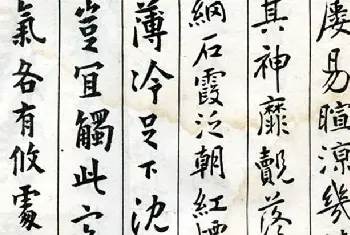 屡易暄凉几
其神靡觌落
網石霞泛朝紅煙
薄冷足下沈
豈宜觸此
氣各有攸處